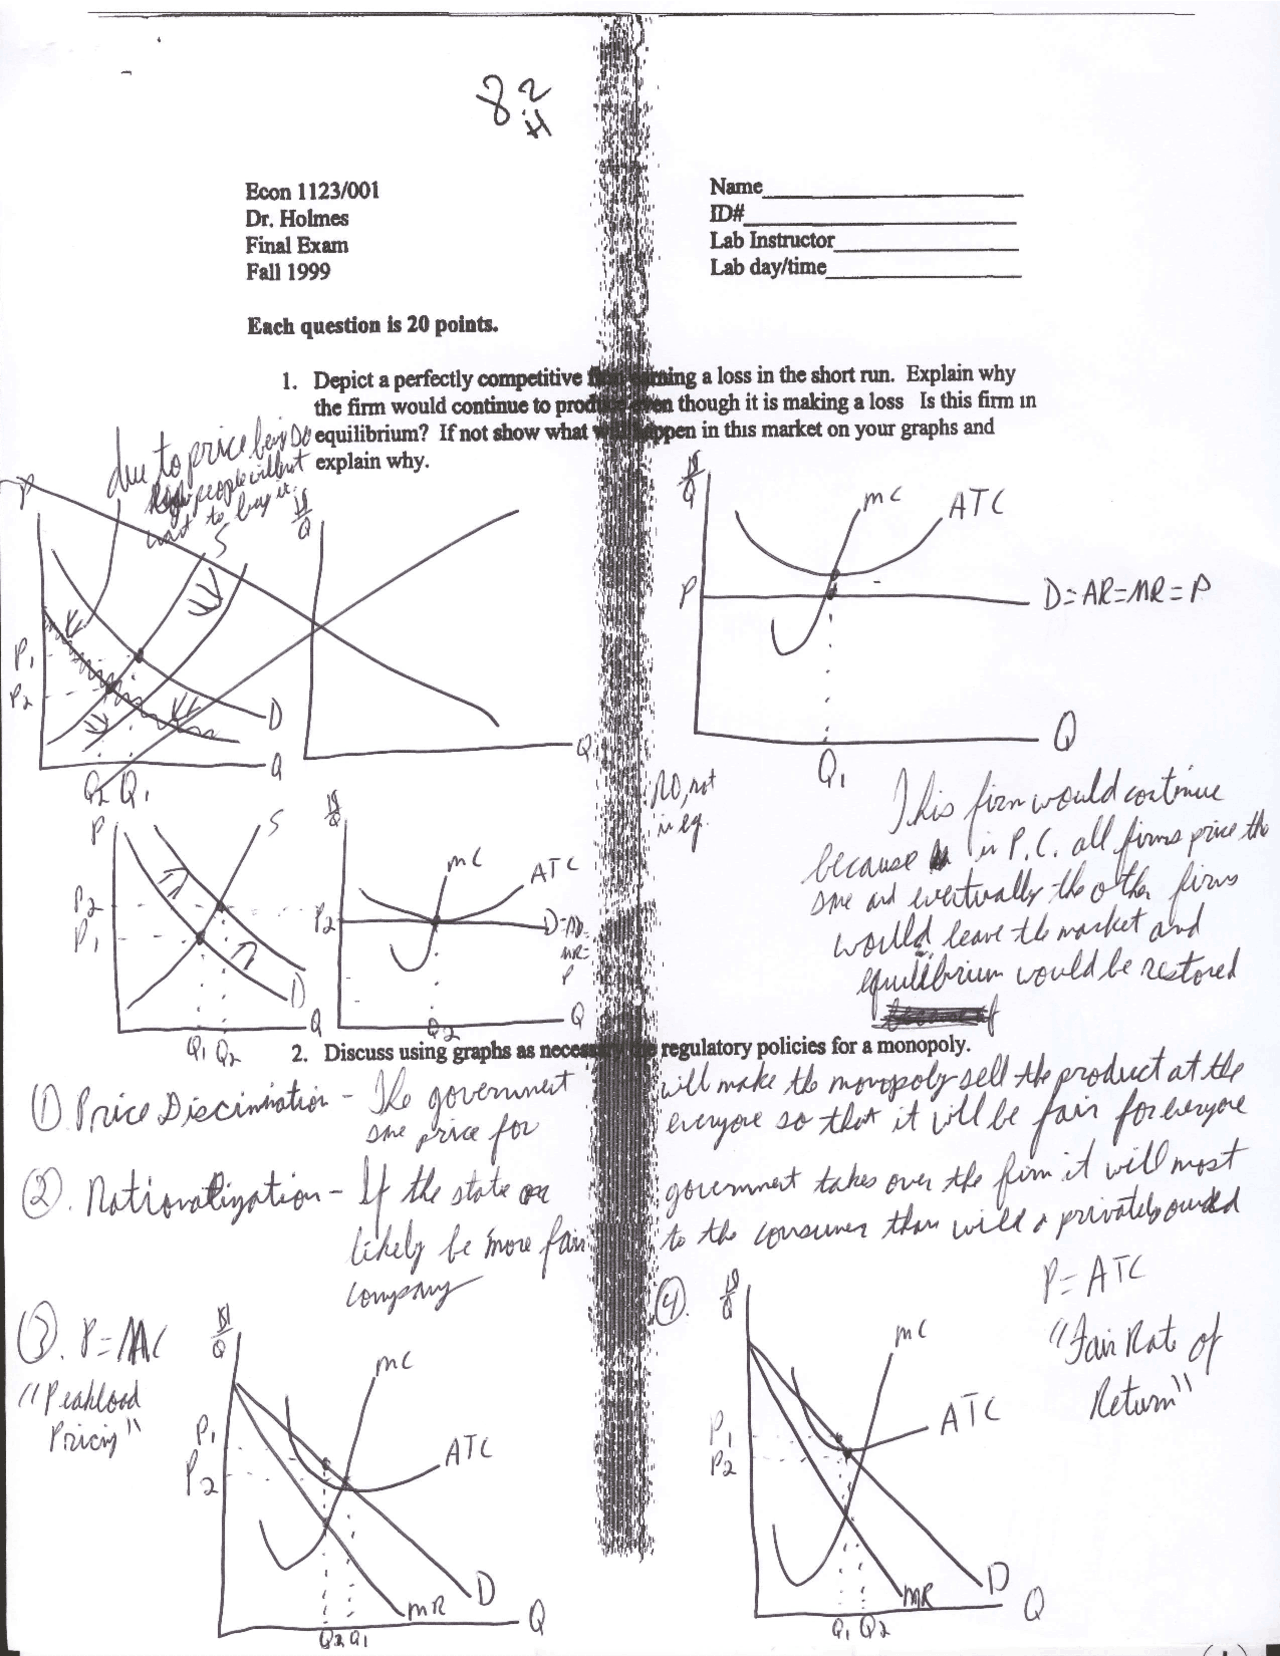 82
H
Econ 1123/001
Dr. Holmes
Final Exam
Fall 1999
Name
ID#
Lab Instructor
Lab day/time
Each question is 20 points.
1. Depict a perfectly competitive earning a loss in the short run. Explain why
the firm would continue to produce even though it is making a loss Is this firm in
equilibrium? If not show what happen in this market on your graphs and
explain why.
due to price being so
high people will not
want to buy it.
P
S
P1
P2
D
Q
Q2 Q1
$/Q
Q
$/Q
MC
ATC
P
D=AR=MR=P
Q
Q1
P
S
P2
P1
D
Q
Q1 Q2
$/Q
MC
ATC
P2
D=AR=
MR=
P
Q
Q2
NO, not
in eq.
This firm would continue
because in P.C. all firms price the
same and eventually the other firms
would leave the market and
equilibrium would be restored
2. Discuss using graphs as necessary the regulatory policies for a monopoly.
① Price Discimination - The government will make the monopoly sell the product at the
same price for everyone so that it will be fair for everyone
②. Nationalization - If the state or government takes over the firm it will most
likely be more fair to the consumer than will a privately owned
company
③. P=MC
"Peakload
Pricing"
$/Q
MC
P1
P2
ATC
D
MR
Q
Q2 Q1
④.
$/Q
P=ATC
"Fair Rate of
Return"
MC
ATC
P1
P2
D
MR
Q
Q1 Q2